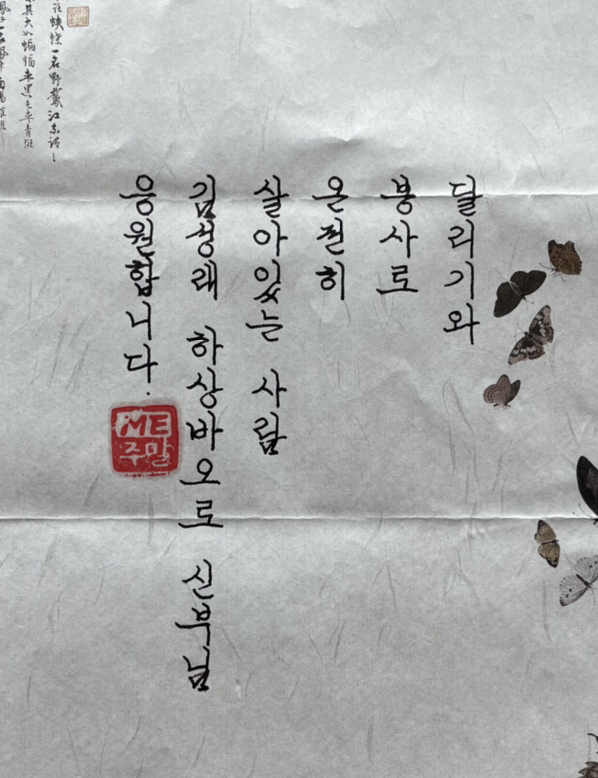 달리기와
봉사로
온전히
살아있는 사람
김성래 하상바오로 신부님
응원합니다.
ME
주말